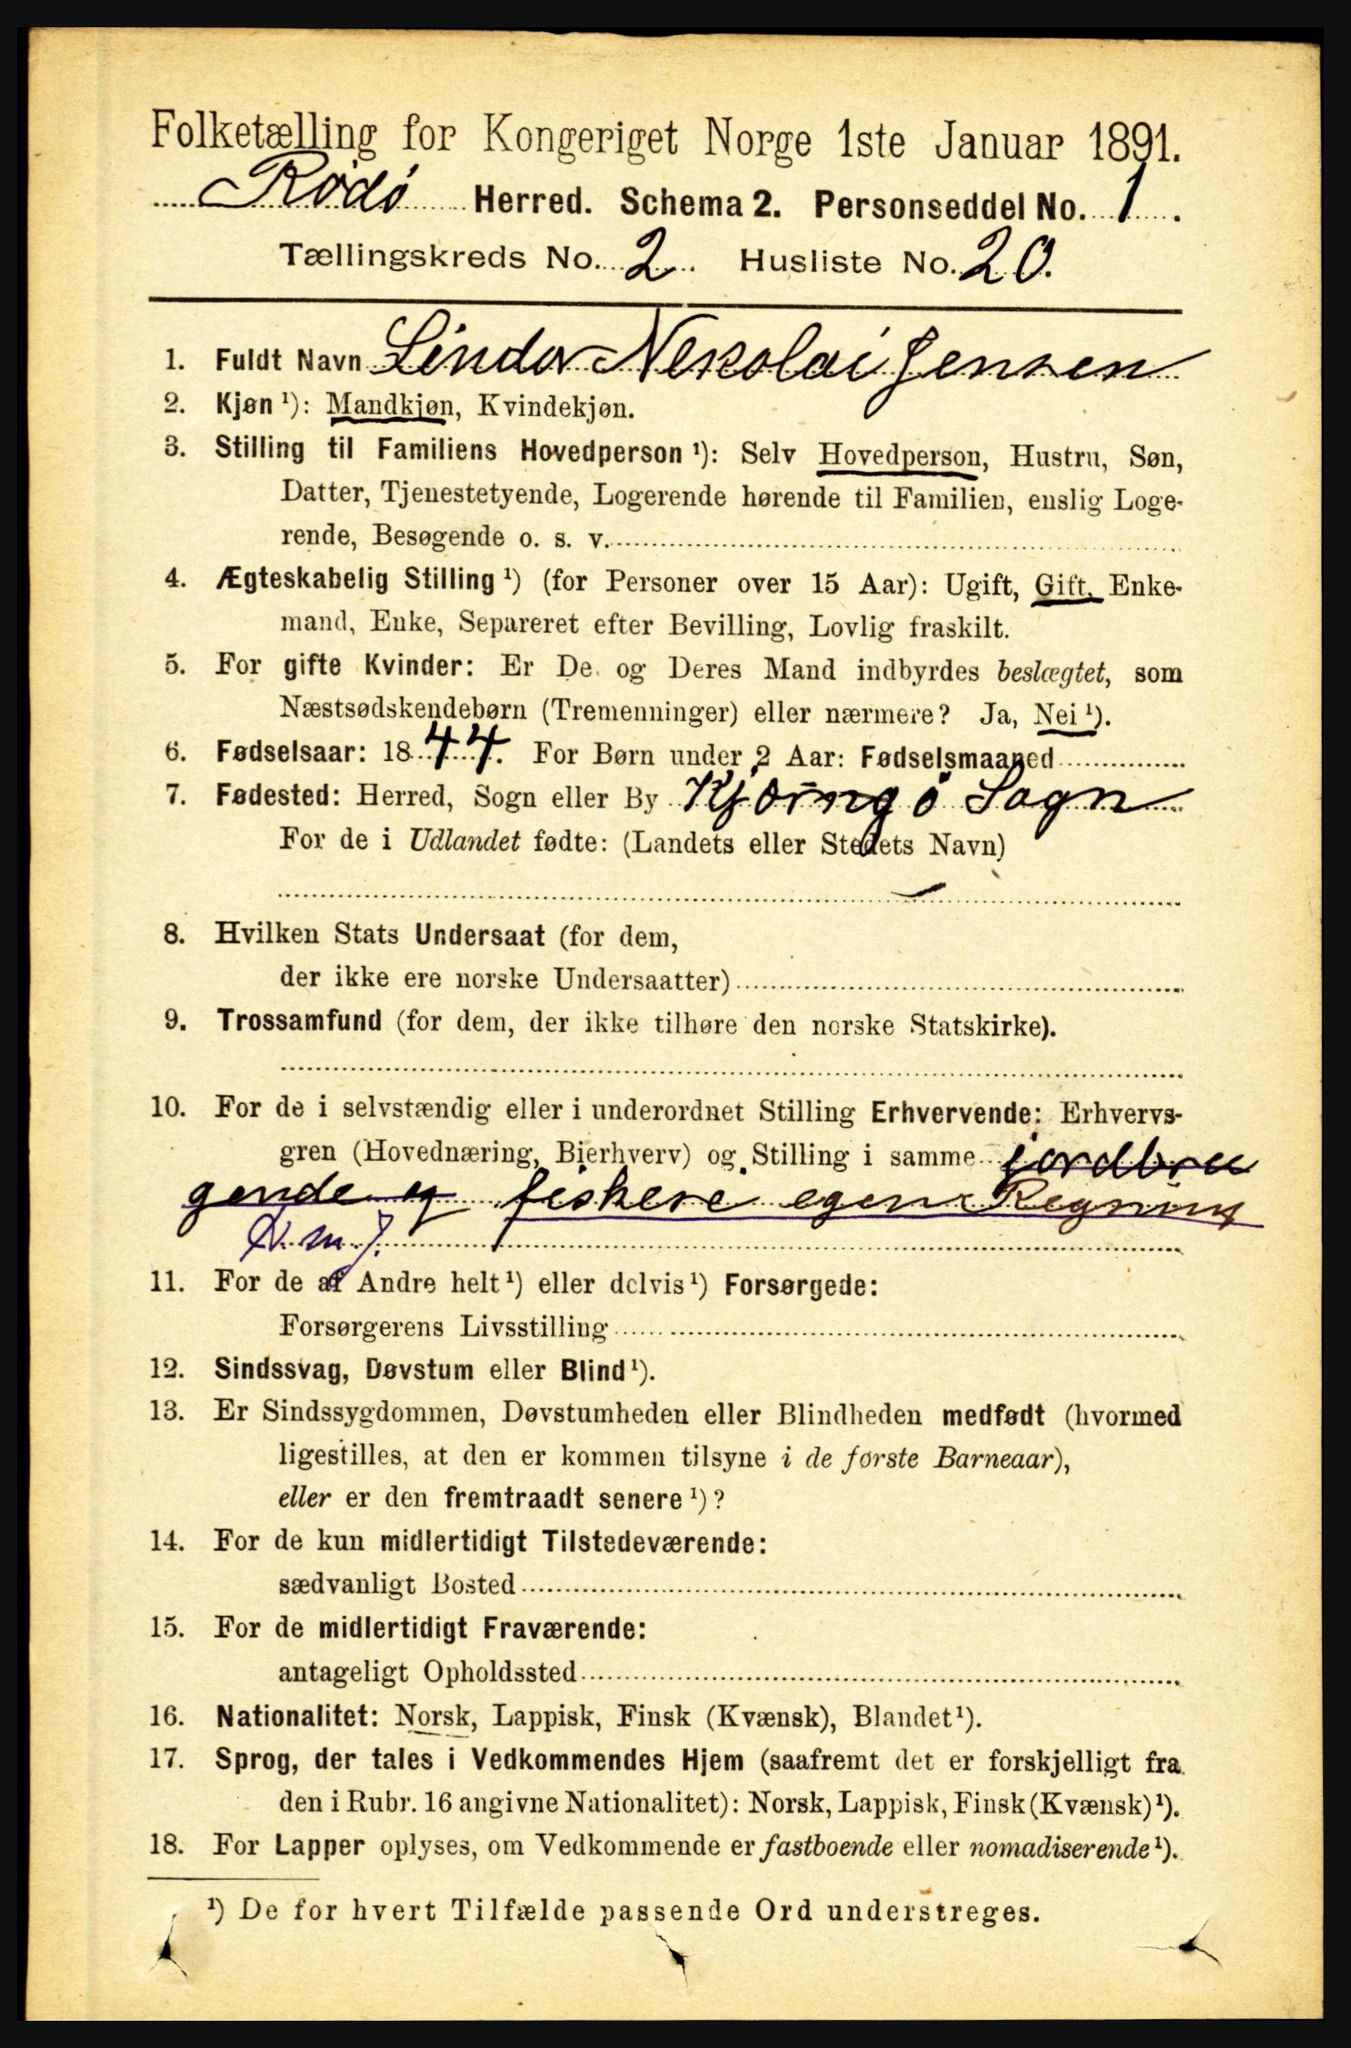 Folketælling for Kongeriget Norge 1ste Januar 1891.
Rödö Herred. Schema 2. Personseddel No. 1.
Tællingskreds No. 2. Husliste No. 20.
1. Fuldt Navn Lindor Nekolai Jensen
2. Kjøn ¹): Mandkjøn, Kvindekjøn.
3. Stilling til Familiens Hovedperson ¹): Selv Hovedperson, Hustru, Søn,
Datter, Tjenestetyende, Logerende hørende til Familien, enslig Loge-
rende, Besøgende o. s. v.
4. Ægteskabelig Stilling ¹) (for Personer over 15 Aar): Ugift, Gift, Enke-
mand, Enke, Separeret efter Bevilling, Lovlig fraskilt.
5. For gifte Kvinder: Er De og Deres Mand indbyrdes beslægtet, som
Næstsødskendebørn (Tremenninger) eller nærmere? Ja, Nei ¹).
6. Fødselsaar: 1844. For Børn under 2 Aar: Fødselsmaaned
7. Fødested: Herred, Sogn eller By Kjøringø Sogn
For de i Udlandet fødte: (Landets eller Stedets Navn)
8. Hvilken Stats Undersaat (for dem,
der ikke ere norske Undersaatter)
9. Trossamfund (for dem, der ikke tilhøre den norske Statskirke).
10. For de i selvstændig eller i underordnet Stilling Erhvervende: Erhvervs-
gren (Hovednæring, Bierhverv) og Stilling i samme jordbru
gende og fiskere egen Regning
11. For de af Andre helt ¹) eller delvis ¹) Forsørgede:
Forsørgerens Livsstilling
12. Sindssvag, Døvstum eller Blind ¹).
13. Er Sindssygdommen, Døvstumheden eller Blindheden medfødt (hvormed
ligestilles, at den er kommen tilsyne i de første Barneaar),
eller er den fremtraadt senere ¹)?
14. For de kun midlertidigt Tilstedeværende:
sædvanligt Bosted
15. For de midlertidigt Fraværende:
antageligt Opholdssted
16. Nationalitet: Norsk, Lappisk, Finsk (Kvænsk), Blandet ¹).
17. Sprog, der tales i Vedkommendes Hjem (saafremt det er forskjelligt fra
den i Rubr. 16 angivne Nationalitet): Norsk, Lappisk, Finsk (Kvænsk) ¹).
18. For Lapper oplyses, om Vedkommende er fastboende eller nomadiserende ¹).
¹) De for hvert Tilfælde passende Ord understreges.